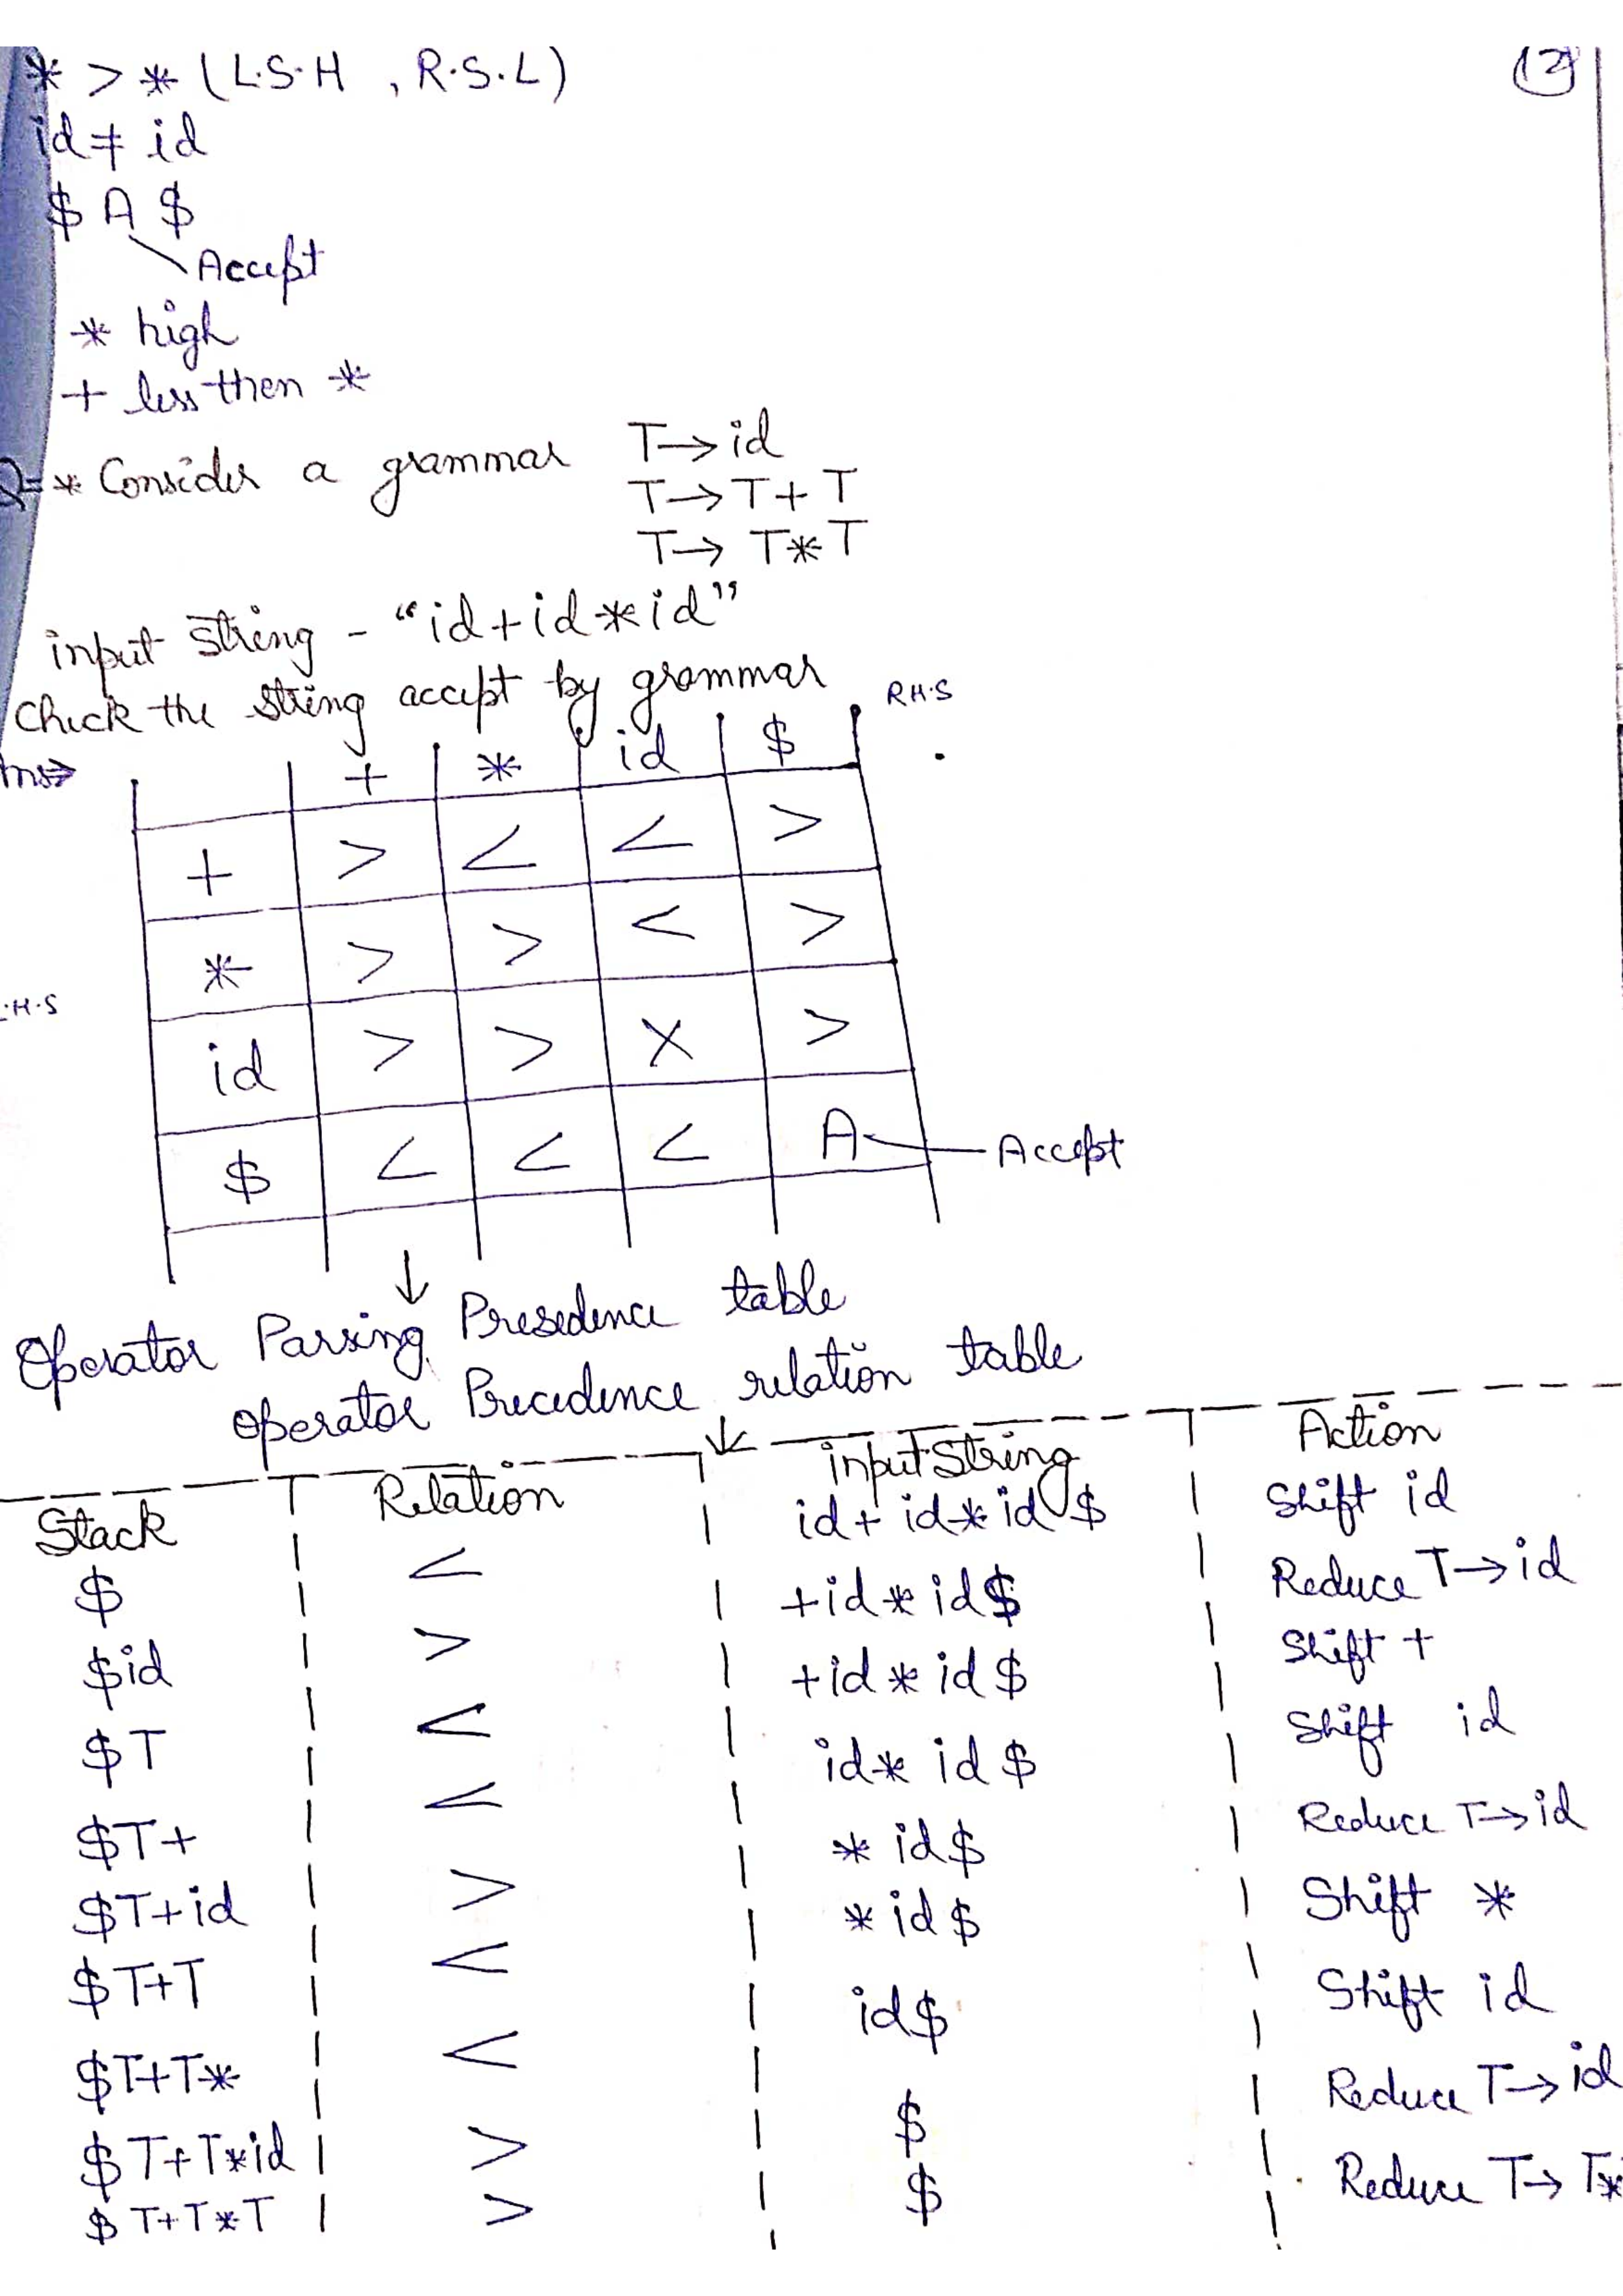 * > * (L.S.H , R.S.L)
(12)
id ≠ id
$ A $
Accept
* high
+ less then *
Q= * Consider a grammar T→id
T→T+T
T→T*T
input string - “id+id*id”
Check the string accept by grammar
R.H.S
Ans⇒
+ * id $
+ > < < >
* > > < >
L.H.S
id > > X >
$ < < < A Accept
↓
Operator Parsing Presedence table
Operator Precedence relation table
Stack Relation input String Action
$ < id+id*id$ Shift id
$id > +id*id$ Reduce T→id
$T < +id*id$ Shift +
$T+ < id*id$ Shift id
$T+id > *id$ Reduce T→id
$T+T < *id$ Shift *
$T+T* < id$ Shift id
$T+T*id > $ Reduce T→id
$T+T*T > $ Reduce T→T*